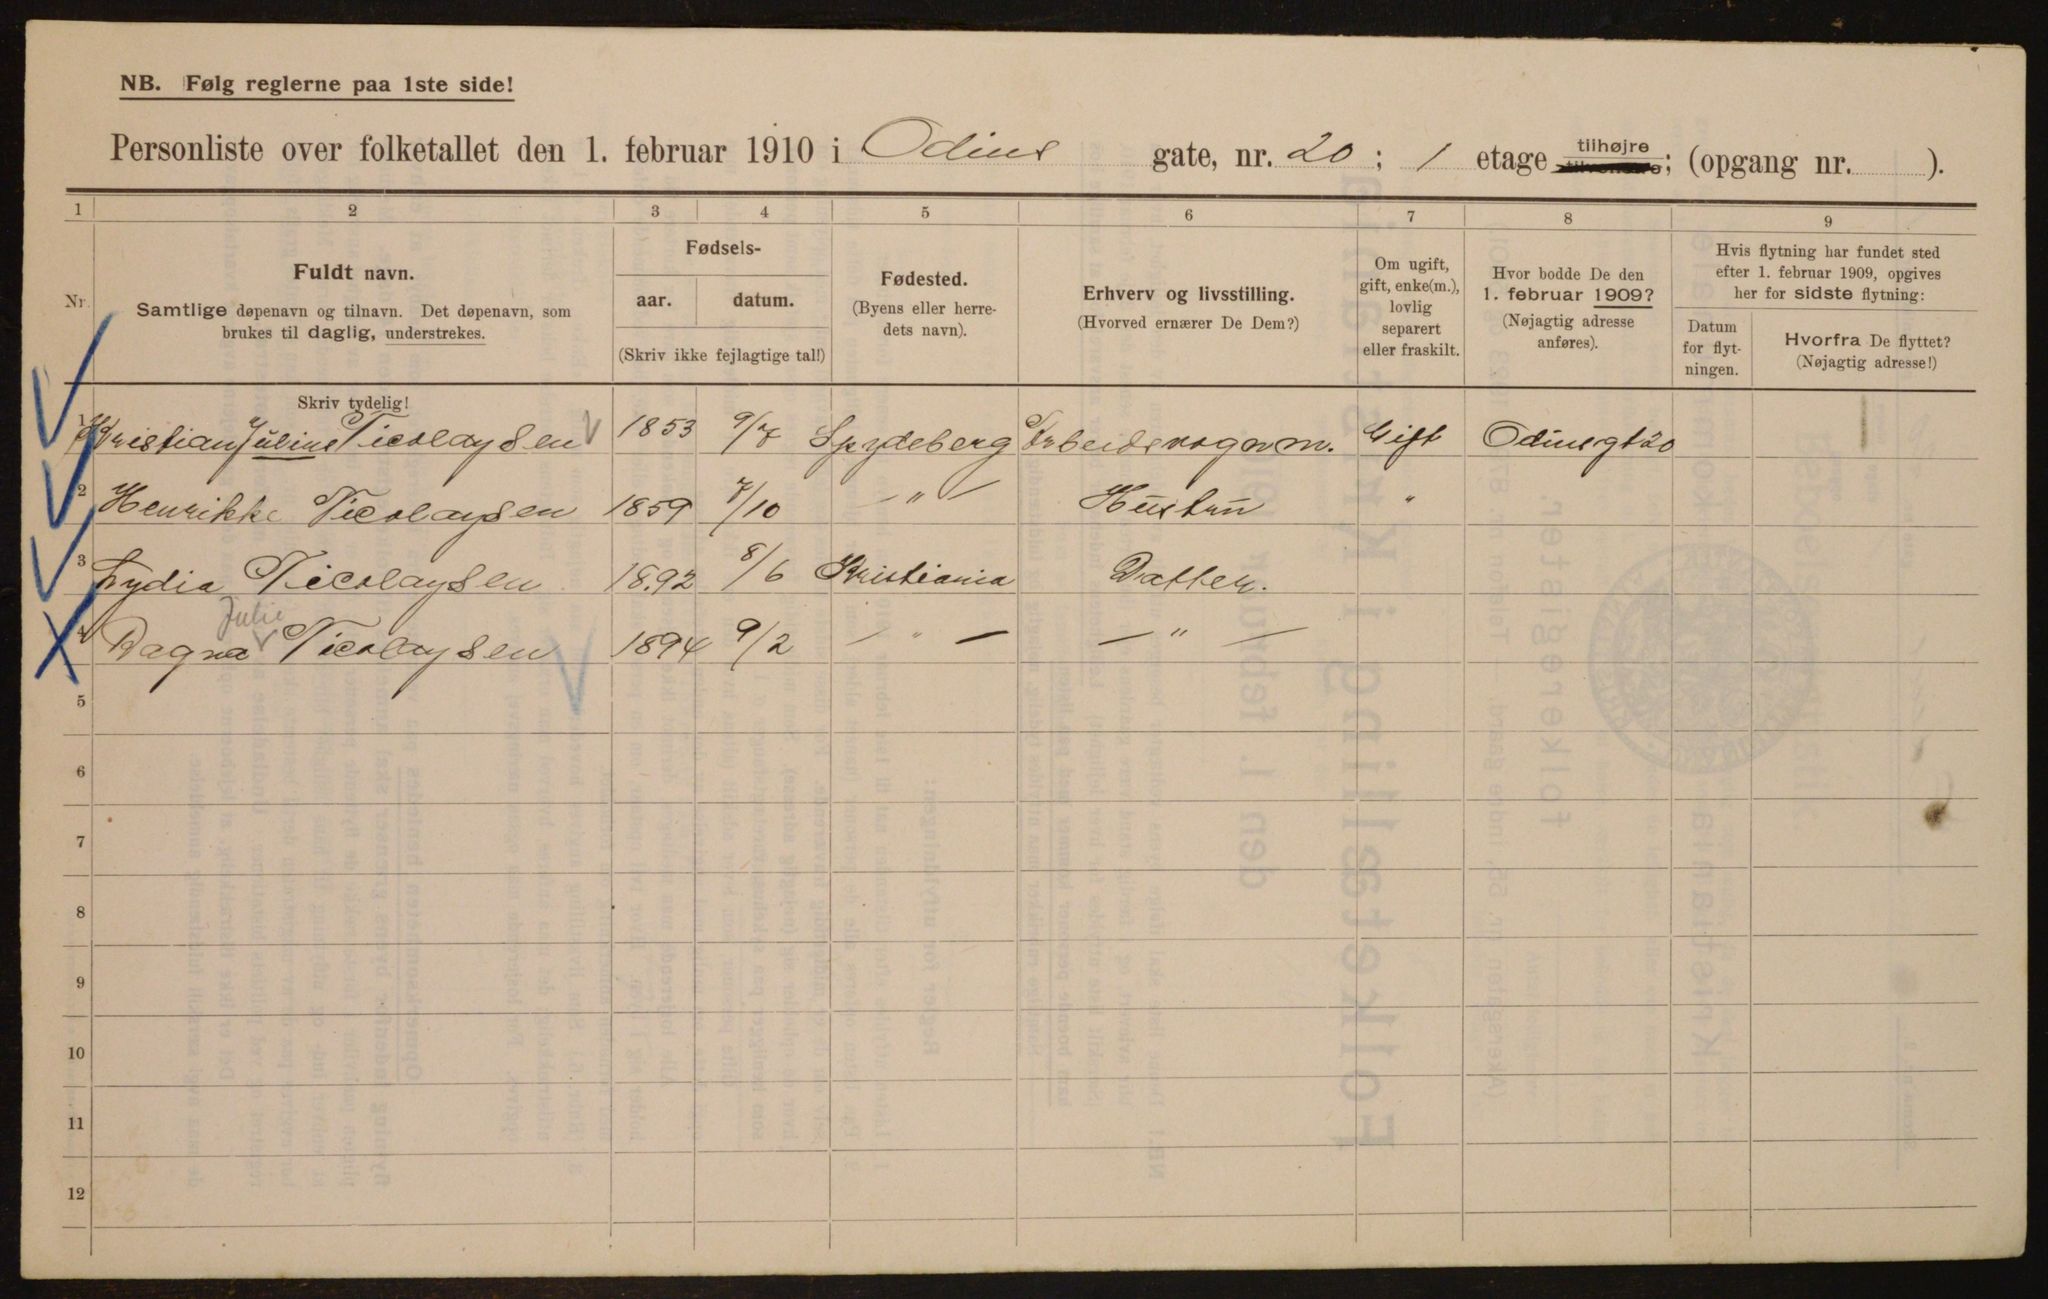 NB. Følg reglerne paa 1ste side!
Personliste over folketallet den 1. februar 1910 i Odins gate, nr. 20 ; 1 etage tilhøjre tilvenstre; (opgang nr. ).
1 2 3 4 5 6 7 8 9
Nr. Fuldt navn.
Samtlige døpenavn og tilnavn. Det døpenavn, som
brukes til daglig, understrekes.
Fødsels-
aar. datum.
(Skriv ikke fejlagtige tal!)
Fødested.
(Byens eller herre-
dets navn).
Erhverv og livsstilling.
(Hvorved ernærer De Dem?)
Om ugift,
gift, enke(m.),
lovlig
separert
eller fraskilt.
Hvor bodde De den
1. februar 1909?
(Nøjagtig adresse
anføres).
Hvis flytning har fundet sted
efter 1. februar 1909, opgives
her for sidste flytning:
Datum
for flyt-
ningen.
Hvorfra De flyttet?
(Nøjagtig adresse!)
Skriv tydelig!
1 Kristian Julius Nicolaysen 1853 9/7 Spydeberg Arbeidsvognm. Gift Odinsgt 20
2 Henrikke Nicolaysen 1859 7/10 — " — Hustru "
3 Lydia Nicolaysen 1892 8/6 Kristiania Datter.
Julie
4 Dagna Nicolaysen 1894 9/2 — " — — " —
5
6
7
8
9
10
11
12